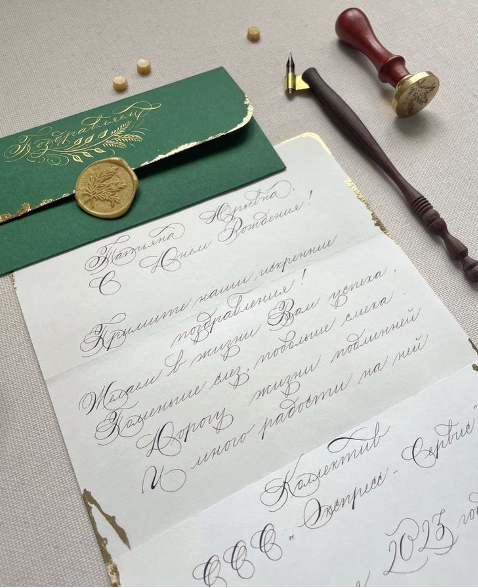 Поздравляем
Татьяна Юрьевна,
С Днем Рождения!
Примите наши искренние
поздравления!
Желаем в жизни Вам успеха,
Поменьше слез, побольше смеха
Дорогу жизни подлинней
И много радости на ней
Коллектив
ООО "Экспресс - Сервис"
2023 год